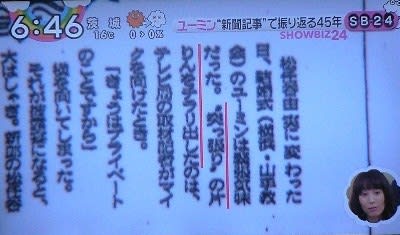 6:46
茨城
16℃ 0▷0%
ユーミン“新聞記事”で振り返る45年
SB24
SHOWBIZ24
松任谷由実に変わった
日、結婚式(横浜・山手教
会)のユーミンは緊張気味
だった。“突っ張り”の片
りんをチラリ出したのは、
テレビ局の取材記者がマイ
クを向けたとき。
「きょうはプライベート
のことですから」
横を向いてしまった。
それが披露宴になると、
大はしゃぎ。新郎の